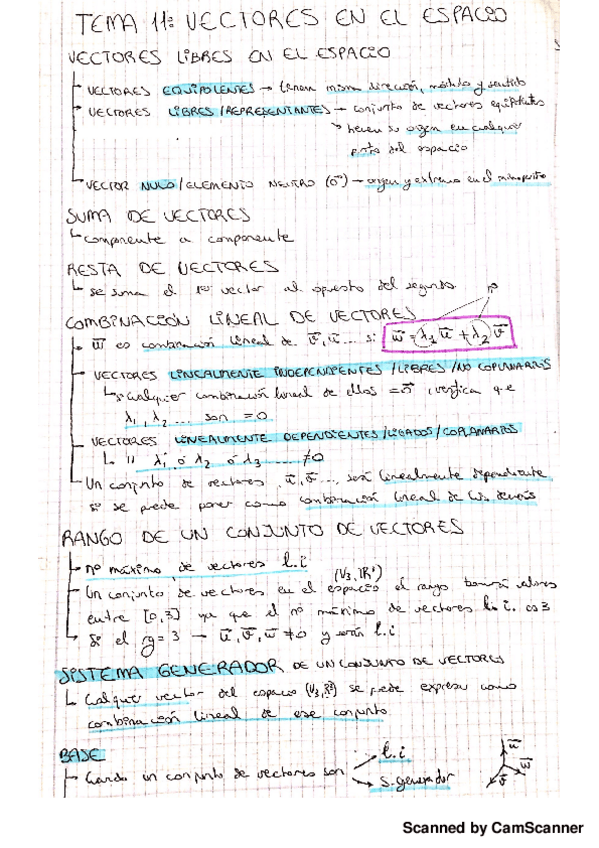 TEMA 11: VECTORES EN EL ESPACIO
VECTORES LIBRES EN EL ESPACIO
VECTORES EQUIPOLENTES → tienen misma dirección, módulo y sentido
VECTORES LIBRES/REPRESENTANTES → conjunto de vectores equipolentes
↘ tienen su origen en cualquier
pnto del espacio
VECTOR NULO/ELEMENTO NEUTRO (0⃗) → origen y extremo en el mismo pnto
SUMA DE VECTORES
↳ componente a componente
RESTA DE VECTORES
↳ se suma el 1er vector al opuesto del segundo
nº
COMBINACIÓN LINEAL DE VECTORES
w⃗ es combinación lineal de v⃗, u⃗ ... si w⃗ = λ1 u⃗ + λ2 v⃗
VECTORES LINEALMENTE INDEPENDIENTES/LIBRES/NO COPLANARIOS
↳ cualquier combinación lineal de ellos = 0⃗, verifica que
λ1, λ2 ... son = 0
VECTORES LINEALMENTE DEPENDIENTES/LIGADOS/COPLANARIOS
↳ " λ1 ó λ2 ó λ3 .... ≠ 0
Un conjunto de vectores u⃗, v⃗ ... será linealmente dependiente
si se puede poner como combinación lineal de los demás
RANGO DE UN CONJUNTO DE VECTORES
nº máximo de vectores l.i
(V3, ℝ³)
Un conjunto de vectores en el espacio el rango tomará valores
entre [0,3] ya que el nº máximo de vectores l.i. es 3
Si el rg = 3 → u⃗, v⃗, w⃗ ≠ 0 y serán l.i
SISTEMA GENERADOR DE UN CONJUNTO DE VECTORES
↳ Cualquier vector del espacio (V3, ℝ³) se puede expresar como
combinación lineal de ese conjunto
BASE
l.i
Cuando un conjunto de vectores son
S. generador
u⃗
w⃗
v⃗
Scanned by CamScanner